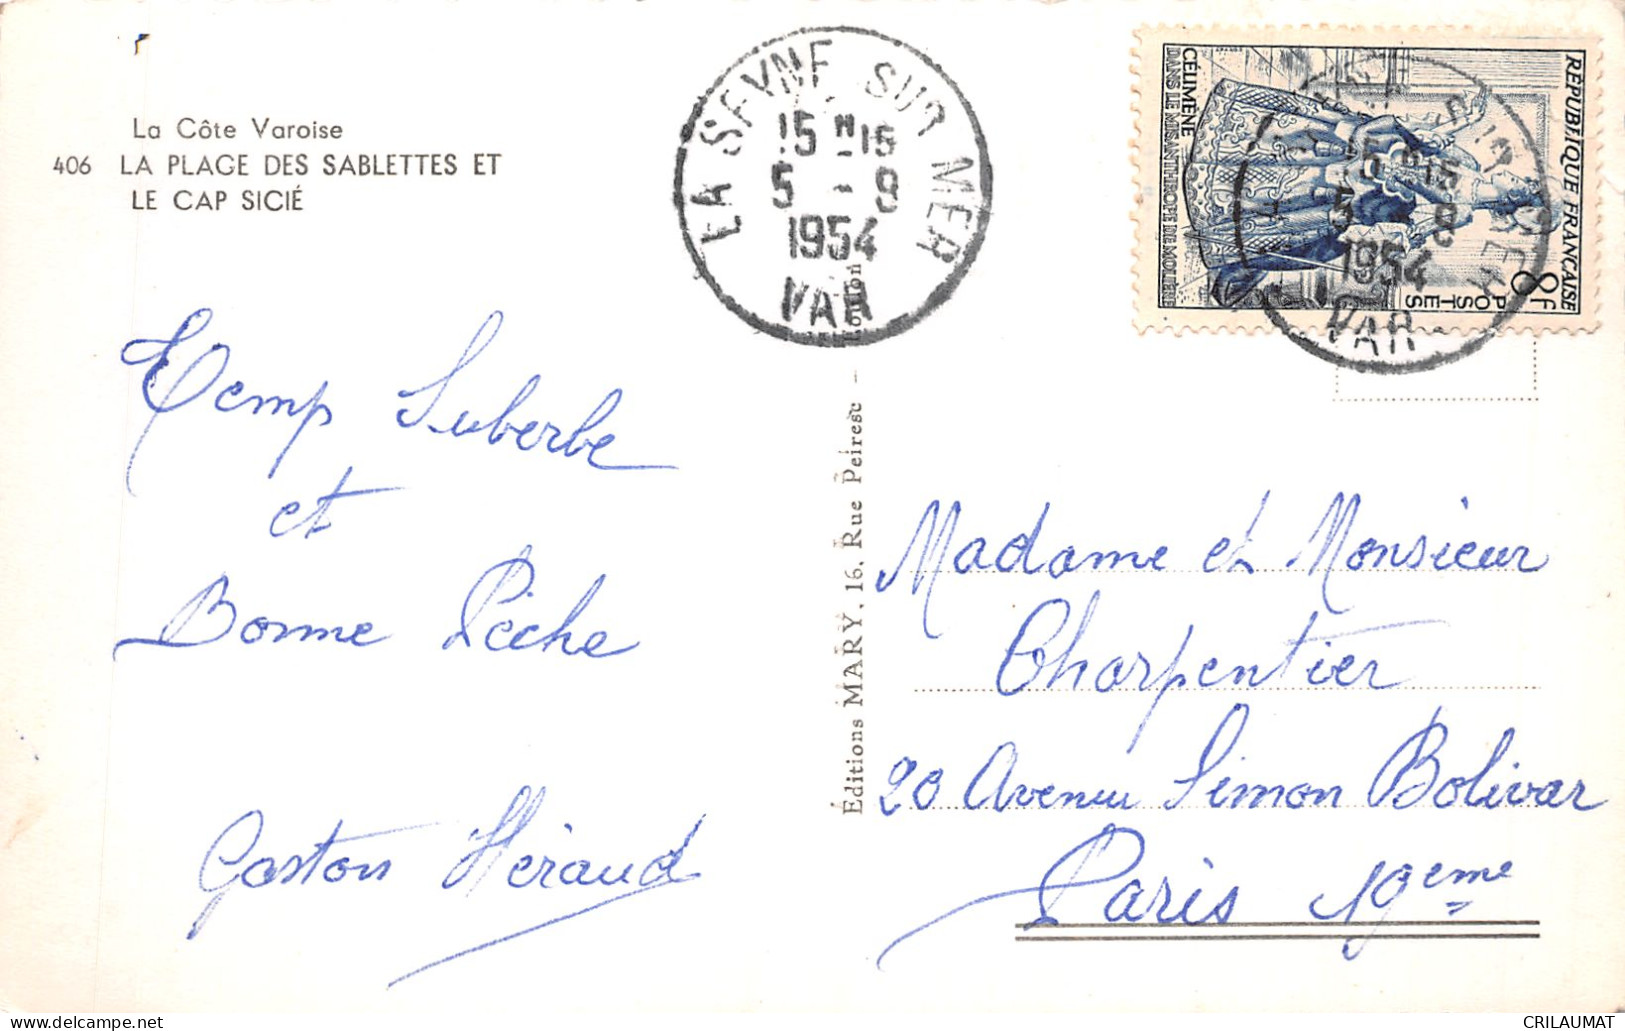 La Côte Varoise
406 LA PLAGE DES SABLETTES ET
LE CAP SICIÉ
LA SEYNE SUR MER
15 H 15
5 - 9
1954
VAR
REPUBLIQUE FRANÇAISE
8F
POSTES
CÉLIMÈNE
DANS LE MISANTHROPE DE MOLIÈRE
LA SEYNE SUR MER
15 H 15
5 - 9
1954
VAR
Temp Suberbe
et
Bonne Pêche
Gaston Héraud
Éditions MARY, 16, Rue Peiresc - Toulon
Madame et Monsieur
Charpentier
20 Avenue Simon Bolivar
Paris 19eme
CRILAUMAT